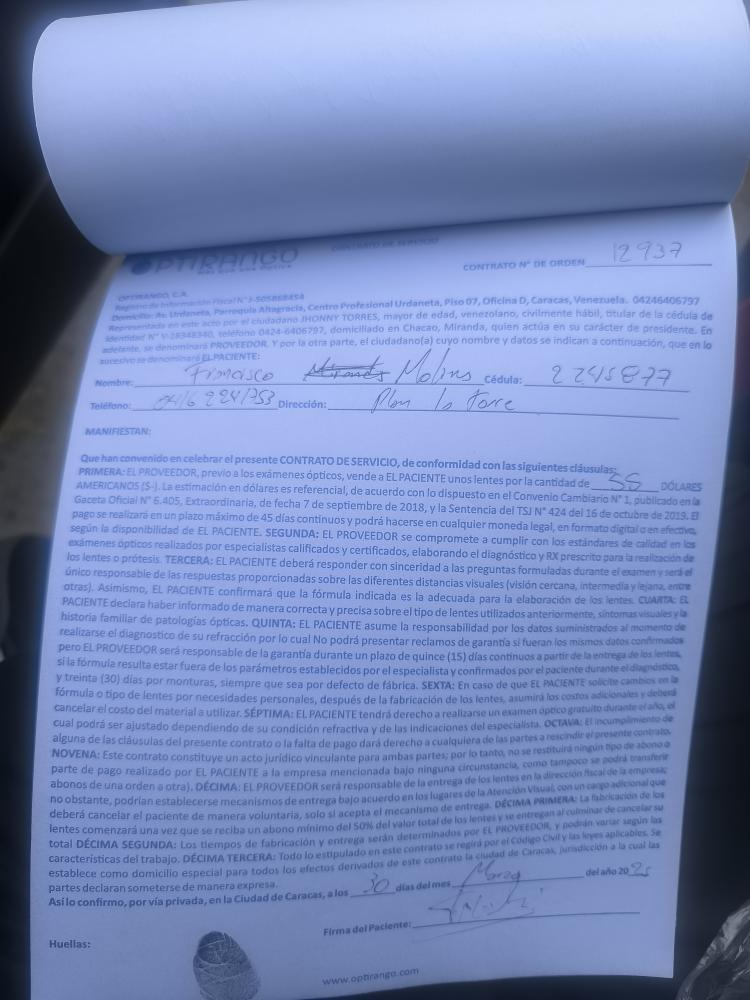 OPTIRANGO
CONTRATO DE SERVICIO
CONTRATO N° DE ORDEN 12937
OPTIRANGO, C.A.
Registro de Información Fiscal N° J-505868454
Domicilio: Av. Urdaneta, Parroquia Altagracia, Centro Profesional Urdaneta, Piso 07, Oficina D, Caracas, Venezuela. 04246406797
Representada en este acto por el ciudadano JHONNY TORRES, mayor de edad, venezolano, civilmente hábil, titular de la cédula de
Identidad N° V-28348340, teléfono 0424-6406797, domiciliado en Chacao, Miranda, quien actúa en su carácter de presidente. En
adelante, se denominará PROVEEDOR. Y por la otra parte, el ciudadano(a) cuyo nombre y datos se indican a continuación, que en lo
sucesivo se denominará EL PACIENTE:
Nombre: Francisco Molins Cédula: 2245877
Teléfono: Dirección: Plan la Torre
MANIFIESTAN:
Que han convenido en celebrar el presente CONTRATO DE SERVICIO, de conformidad con las siguientes cláusulas:
PRIMERA: EL PROVEEDOR, previo a los exámenes ópticos, vende a EL PACIENTE unos lentes por la cantidad de 55 DÓLARES
AMERICANOS (S-). La estimación en dólares es referencial, de acuerdo con lo dispuesto en el Convenio Cambiario N° 1, publicado en la
Gaceta Oficial N° 6.405, Extraordinaria, de fecha 7 de septiembre de 2018, y la Sentencia del TSJ N° 424 del 16 de octubre de 2019. El
pago se realizará en un plazo máximo de 45 días continuos y podrá hacerse en cualquier moneda legal, en formato digital o en efectivo,
según la disponibilidad de EL PACIENTE. SEGUNDA: EL PROVEEDOR se compromete a cumplir con los estándares de calidad en los
exámenes ópticos realizados por especialistas calificados y certificados, elaborando el diagnóstico y RX prescrito para la realización de
los lentes o prótesis. TERCERA: EL PACIENTE deberá responder con sinceridad a las preguntas formuladas durante el examen y será el
único responsable de las respuestas proporcionadas sobre las diferentes distancias visuales (visión cercana, intermedia y lejana, entre
otras). Asimismo, EL PACIENTE confirmará que la fórmula indicada es la adecuada para la elaboración de los lentes. CUARTA: EL
PACIENTE declara haber informado de manera correcta y precisa sobre el tipo de lentes utilizados anteriormente, síntomas visuales y la
historia familiar de patologías ópticas. QUINTA: EL PACIENTE asume la responsabilidad por los datos suministrados al momento de
realizarse el diagnostico de su refracción por lo cual No podrá presentar reclamos de garantía si fueran los mismos datos confirmados
pero EL PROVEEDOR será responsable de la garantía durante un plazo de quince (15) días continuos a partir de la entrega de los lentes,
si la fórmula resulta estar fuera de los parámetros establecidos por el especialista y confirmados por el paciente durante el diagnóstico,
y treinta (30) días por monturas, siempre que sea por defecto de fábrica. SEXTA: En caso de que EL PACIENTE solicite cambios en la
fórmula o tipo de lentes por necesidades personales, después de la fabricación de los lentes, asumirá los costos adicionales y deberá
cancelar el costo del material a utilizar. SÉPTIMA: EL PACIENTE tendrá derecho a realizarse un examen óptico gratuito durante el año, el
cual podrá ser ajustado dependiendo de su condición refractiva y de las indicaciones del especialista. OCTAVA: El incumplimiento de
alguna de las cláusulas del presente contrato o la falta de pago dará derecho a cualquiera de las partes a rescindir el presente contrato.
NOVENA: Este contrato constituye un acto jurídico vinculante para ambas partes; por lo tanto, no se restituirá ningún tipo de abono o
parte de pago realizado por EL PACIENTE a la empresa mencionada bajo ninguna circunstancia, como tampoco se podrá transferir
abonos de una orden a otra). DÉCIMA: EL PROVEEDOR será responsable de la entrega de los lentes en la dirección fiscal de la empresa;
no obstante, podrían establecerse mecanismos de entrega bajo acuerdo en los lugares de la Atención Visual, con un cargo adicional que
deberá cancelar el paciente de manera voluntaria, solo si acepta el mecanismo de entrega. DÉCIMA PRIMERA: La fabricación de los
lentes comenzará una vez que se reciba un abono mínimo del 50% del valor total de los lentes y se entregan al culminar de cancelar su
total DÉCIMA SEGUNDA: Los tiempos de fabricación y entrega serán determinados por EL PROVEEDOR, y podrán variar según las
características del trabajo. DÉCIMA TERCERA: Todo lo estipulado en este contrato se regirá por el Código Civil y las leyes aplicables. Se
establece como domicilio especial para todos los efectos derivados de este contrato la ciudad de Caracas, jurisdicción a la cual las
partes declaran someterse de manera expresa.
Así lo confirmo, por vía privada, en la Ciudad de Caracas, a los 30 días del mes Marzo del año 2025
Firma del Paciente:
Huellas:
www.optirango.com